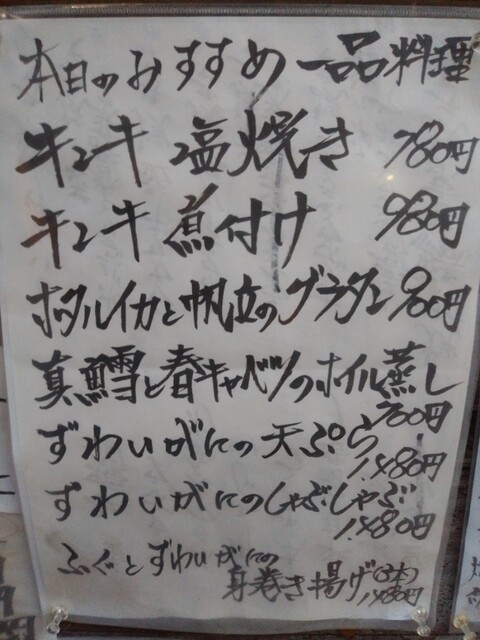 本日のおすすめ一品料理
キンキ 塩焼き 780円
キンキ 煮付け 980円
ホタルイカと帆立のグラタン 900円
真鱈と春キャベツのホイル蒸し
700円
ずわいがにの天ぷら
1,480円
ずわいがにのしゃぶしゃぶ
1,480円
ふぐとずわいがにの
身巻き揚げ(3本)
1,480円